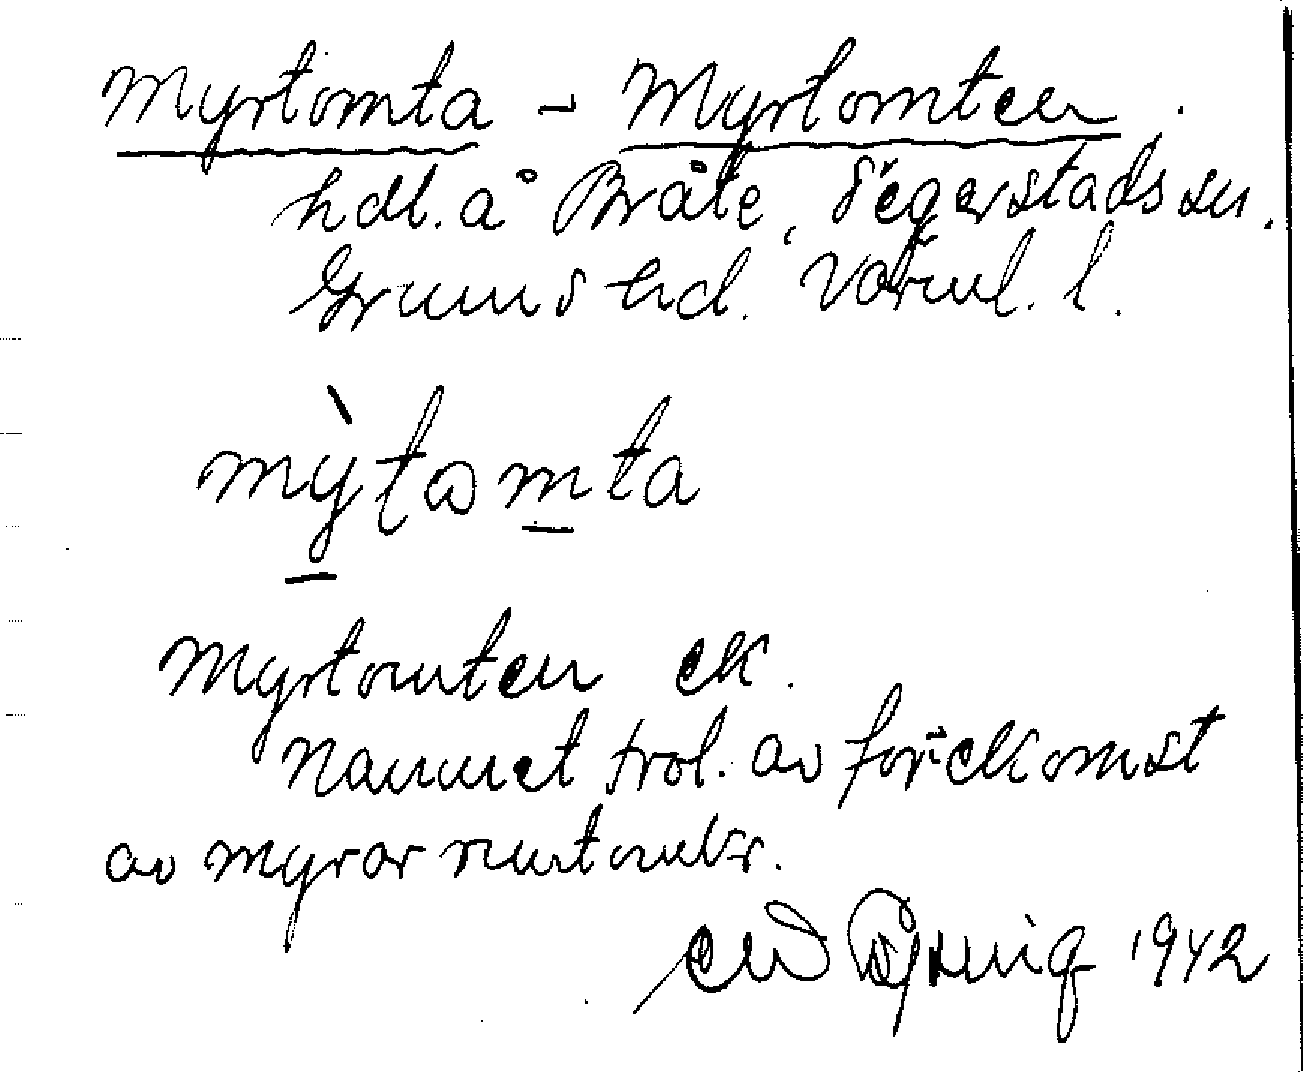 Myrtomta - Myrtomten.
hdl. å Bråte, Segerstads sn.
Grums hd. Värml. l.
mỳtomta
Myrtomten ek.
Namnet trol. av förekomst
av myror runtomkr.
1942